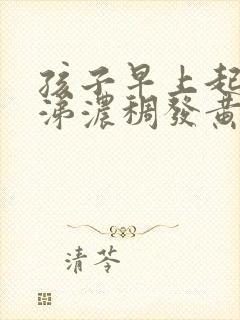 孩子早上起
涕濃稠發黃
清苓